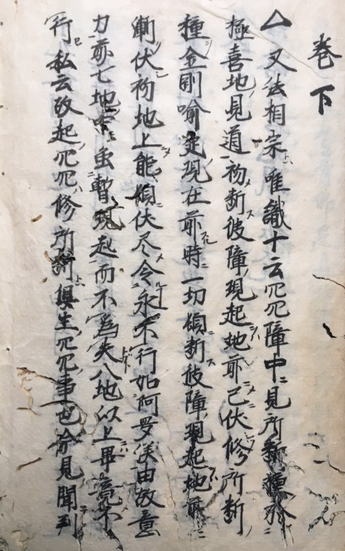 卷下
△又法相宗唯識十云冗冗障中見所断種於
極喜地見道初断彼障現起地前已伏修所断
種金剛喩定現在前時一切頓断彼障現起地前
漸伏初地上能頓伏尽令永不行如阿羅漢由故意
力前七地中虽暫現起而不為失八地以上畢竟不
行私云故起冗冗修所断俱生冗冗事也